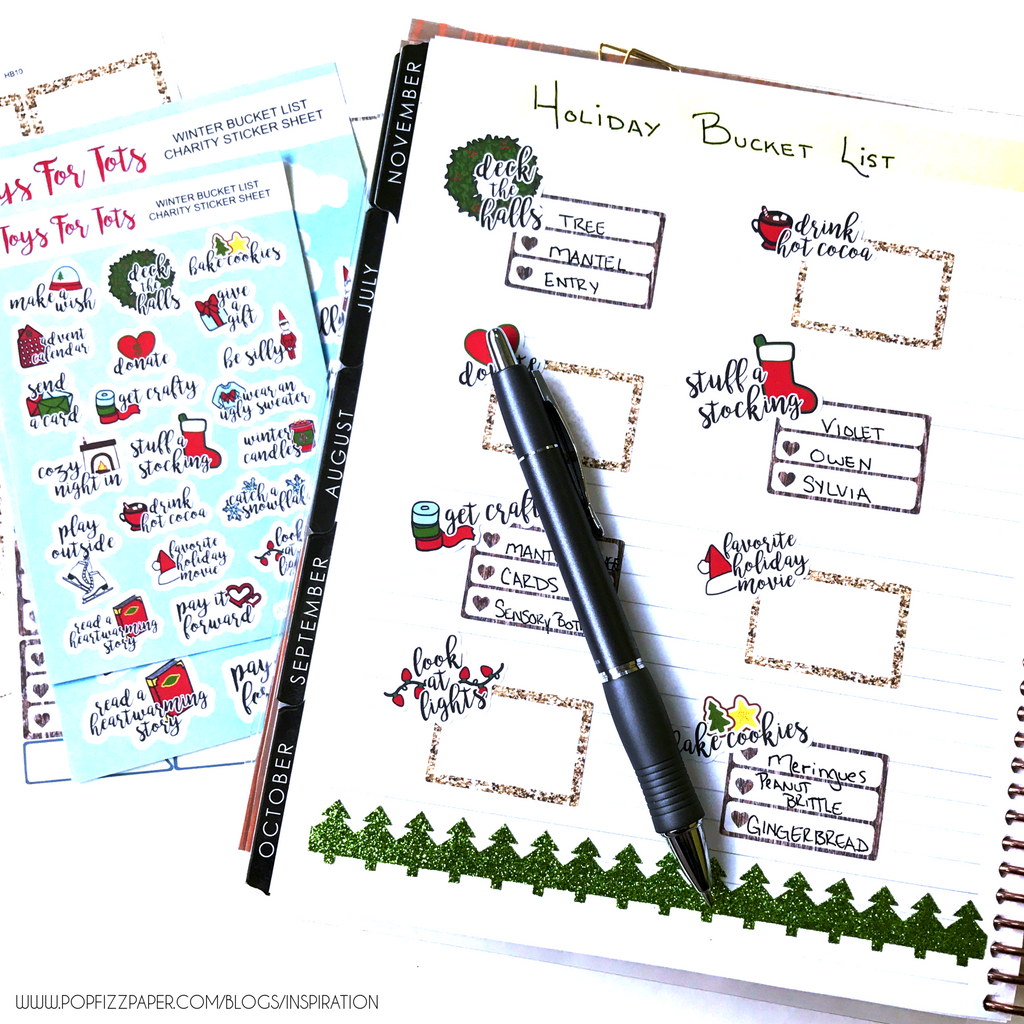 HB10
WINTER BUCKET LIST
CHARITY STICKER SHEET
ys For Tots
WINTER BUCKET LIST
CHARITY STICKER SHEET
Toys For Tots
make a
wish
deck
the
halls
bake cookies
give
a
gift
advent
calendar
donate
be silly
send
a card
get crafty
wear an
ugly sweater
cozy
night in
stuff a
stocking
winter
candles
drink
hot cocoa
catch a
play
outside
favorite
holiday
movie
look
at
read a
heartwarming
story
pay it
forward
read a
heartwarming
story
pay
NOVEMBER
JULY
AUGUST
SEPTEMBER
OCTOBER
HOLIDAY BUCKET LIST
deck
the
halls
TREE
MANTEL
ENTRY
drink
hot cocoa
stuff a
stocking
VIOLET
OWEN
SYLVIA
get craft
MANT
CARDS
SENSORY BOT
favorite
holiday
movie
look
at
lights
bake cookies
Meringues
PEANUT
BRITTLE
GINGERBREAD
WWW.POPFIZZPAPER.COM/BLOGS/INSPIRATION